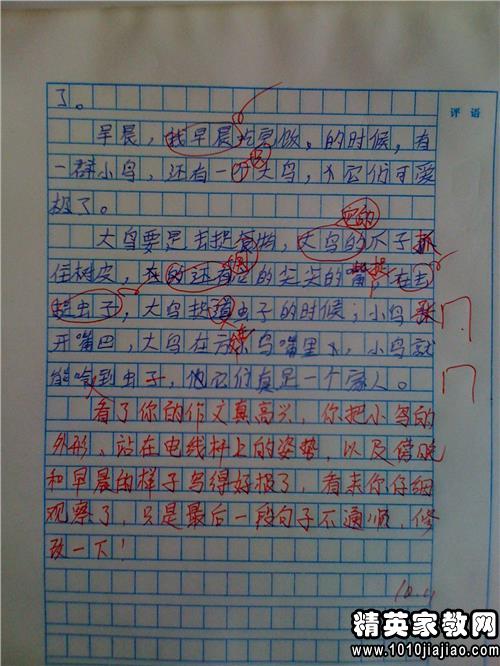 了。
评语
早晨，我早晨吃早饭。的时候，有
一群小鸟，还有一大鸟，它们可爱
极了。
它的
大鸟要是去捉食物，大鸟的爪子抓
住树皮，还有的尖尖的嘴在去
捉虫子，大鸟捉虫子的时候；小鸟张
开嘴巴，大鸟在鸟嘴里，小鸟就
能吃到虫子，它们真是一个家人。
看了你的作文真高兴，你把小鸟的
外形、站在电线杆上的姿势，以及傍晚
和早晨的样子写得好极了，看来你仔细
观察了，只是最后一段句子不通顺，修
改一下！
精英家教网
www.1010jiajiao.com